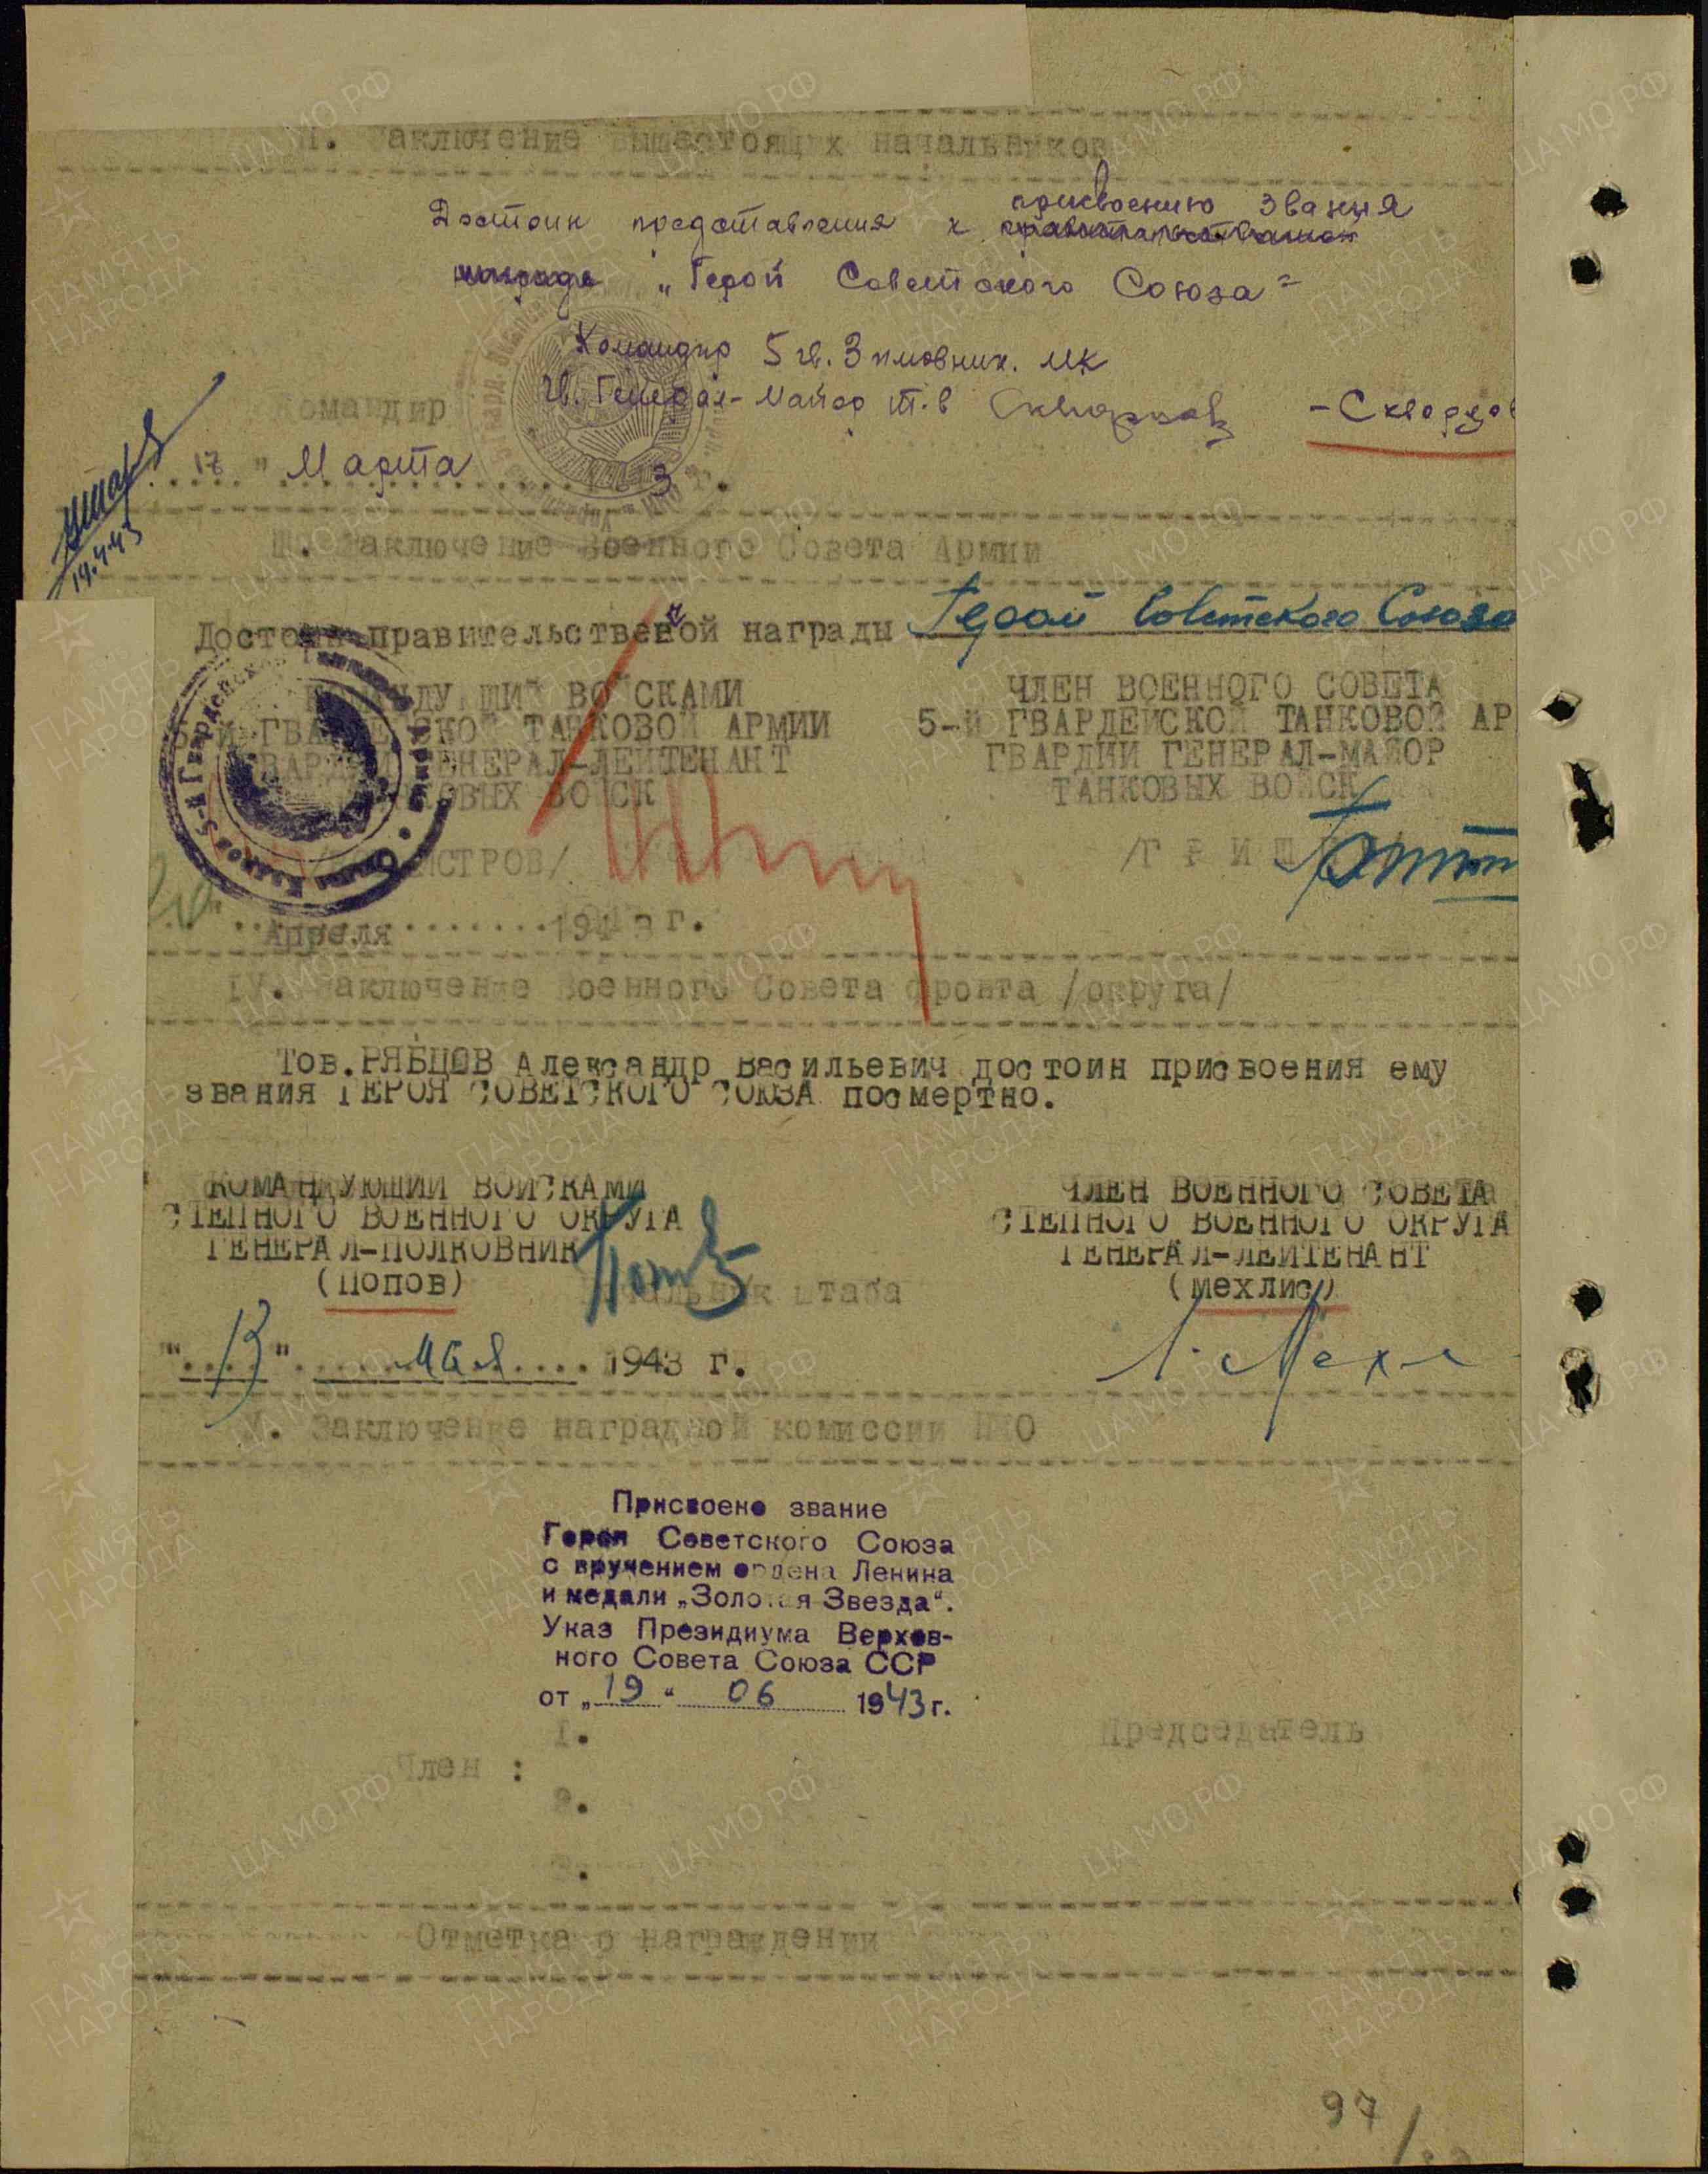 II. Заключение вышестоящих начальников
присвоению звания
Достоин представления к правительственной
награде „Герой Советского Союза"
Командир 5 гв. Зимовник. МК
гв. Генерал-Майор т.в Скворцов -Скворцов
Командир
17 " Марта 3 г.
19.4.43
III. Заключение Военного Совета Армии
Достоин правительственной награды Герой Советского Союза
КОМАНДУЮЩИЙ ВОЙСКАМИ ЧЛЕН ВОЕННОГО СОВЕТА
5-й ГВАРДЕЙСКОЙ ТАНКОВОЙ АРМИИ 5-й ГВАРДЕЙСКОЙ ТАНКОВОЙ АР
ГВАРДИИ ГЕНЕРАЛ-ЛЕЙТЕНАНТ ГВАРДИИ ГЕНЕРАЛ-МАЙОР
ТАНКОВЫХ ВОЙСК ТАНКОВЫХ ВОЙСК
/РОТМИСТРОВ/ /ГРИШ
Апреля 1943 г.
IV. Заключение Военного Совета фронта /округа/
Тов. РЯБЦОВ Александр Васильевич достоин присвоения ему
звания ГЕРОЯ СОВЕТСКОГО СОЮЗА посмертно.
КОМАНДУЮЩИЙ ВОЙСКАМИ ЧЛЕН ВОЕННОГО СОВЕТА
СТЕПНОГО ВОЕННОГО ОКРУГА СТЕПНОГО ВОЕННОГО ОКРУГА
ГЕНЕРАЛ-ПОЛКОВНИК ГЕНЕРАЛ-ЛЕЙТЕНАНТ
(ПОПОВ) (МЕХЛИС)
Начальник штаба
"13" мая 1943 г. Л. Мехл
V. Заключение наградной комиссии НКО
Присвоено звание
Героя Советского Союза
с вручением ордена Ленина
и медали „Золотая Звезда".
Указ Президиума Верхов-
ного Совета Союза ССР
от „19" 06 1943 г.
1. Председатель
Член :
2.
3.
Отметка о награждении
97